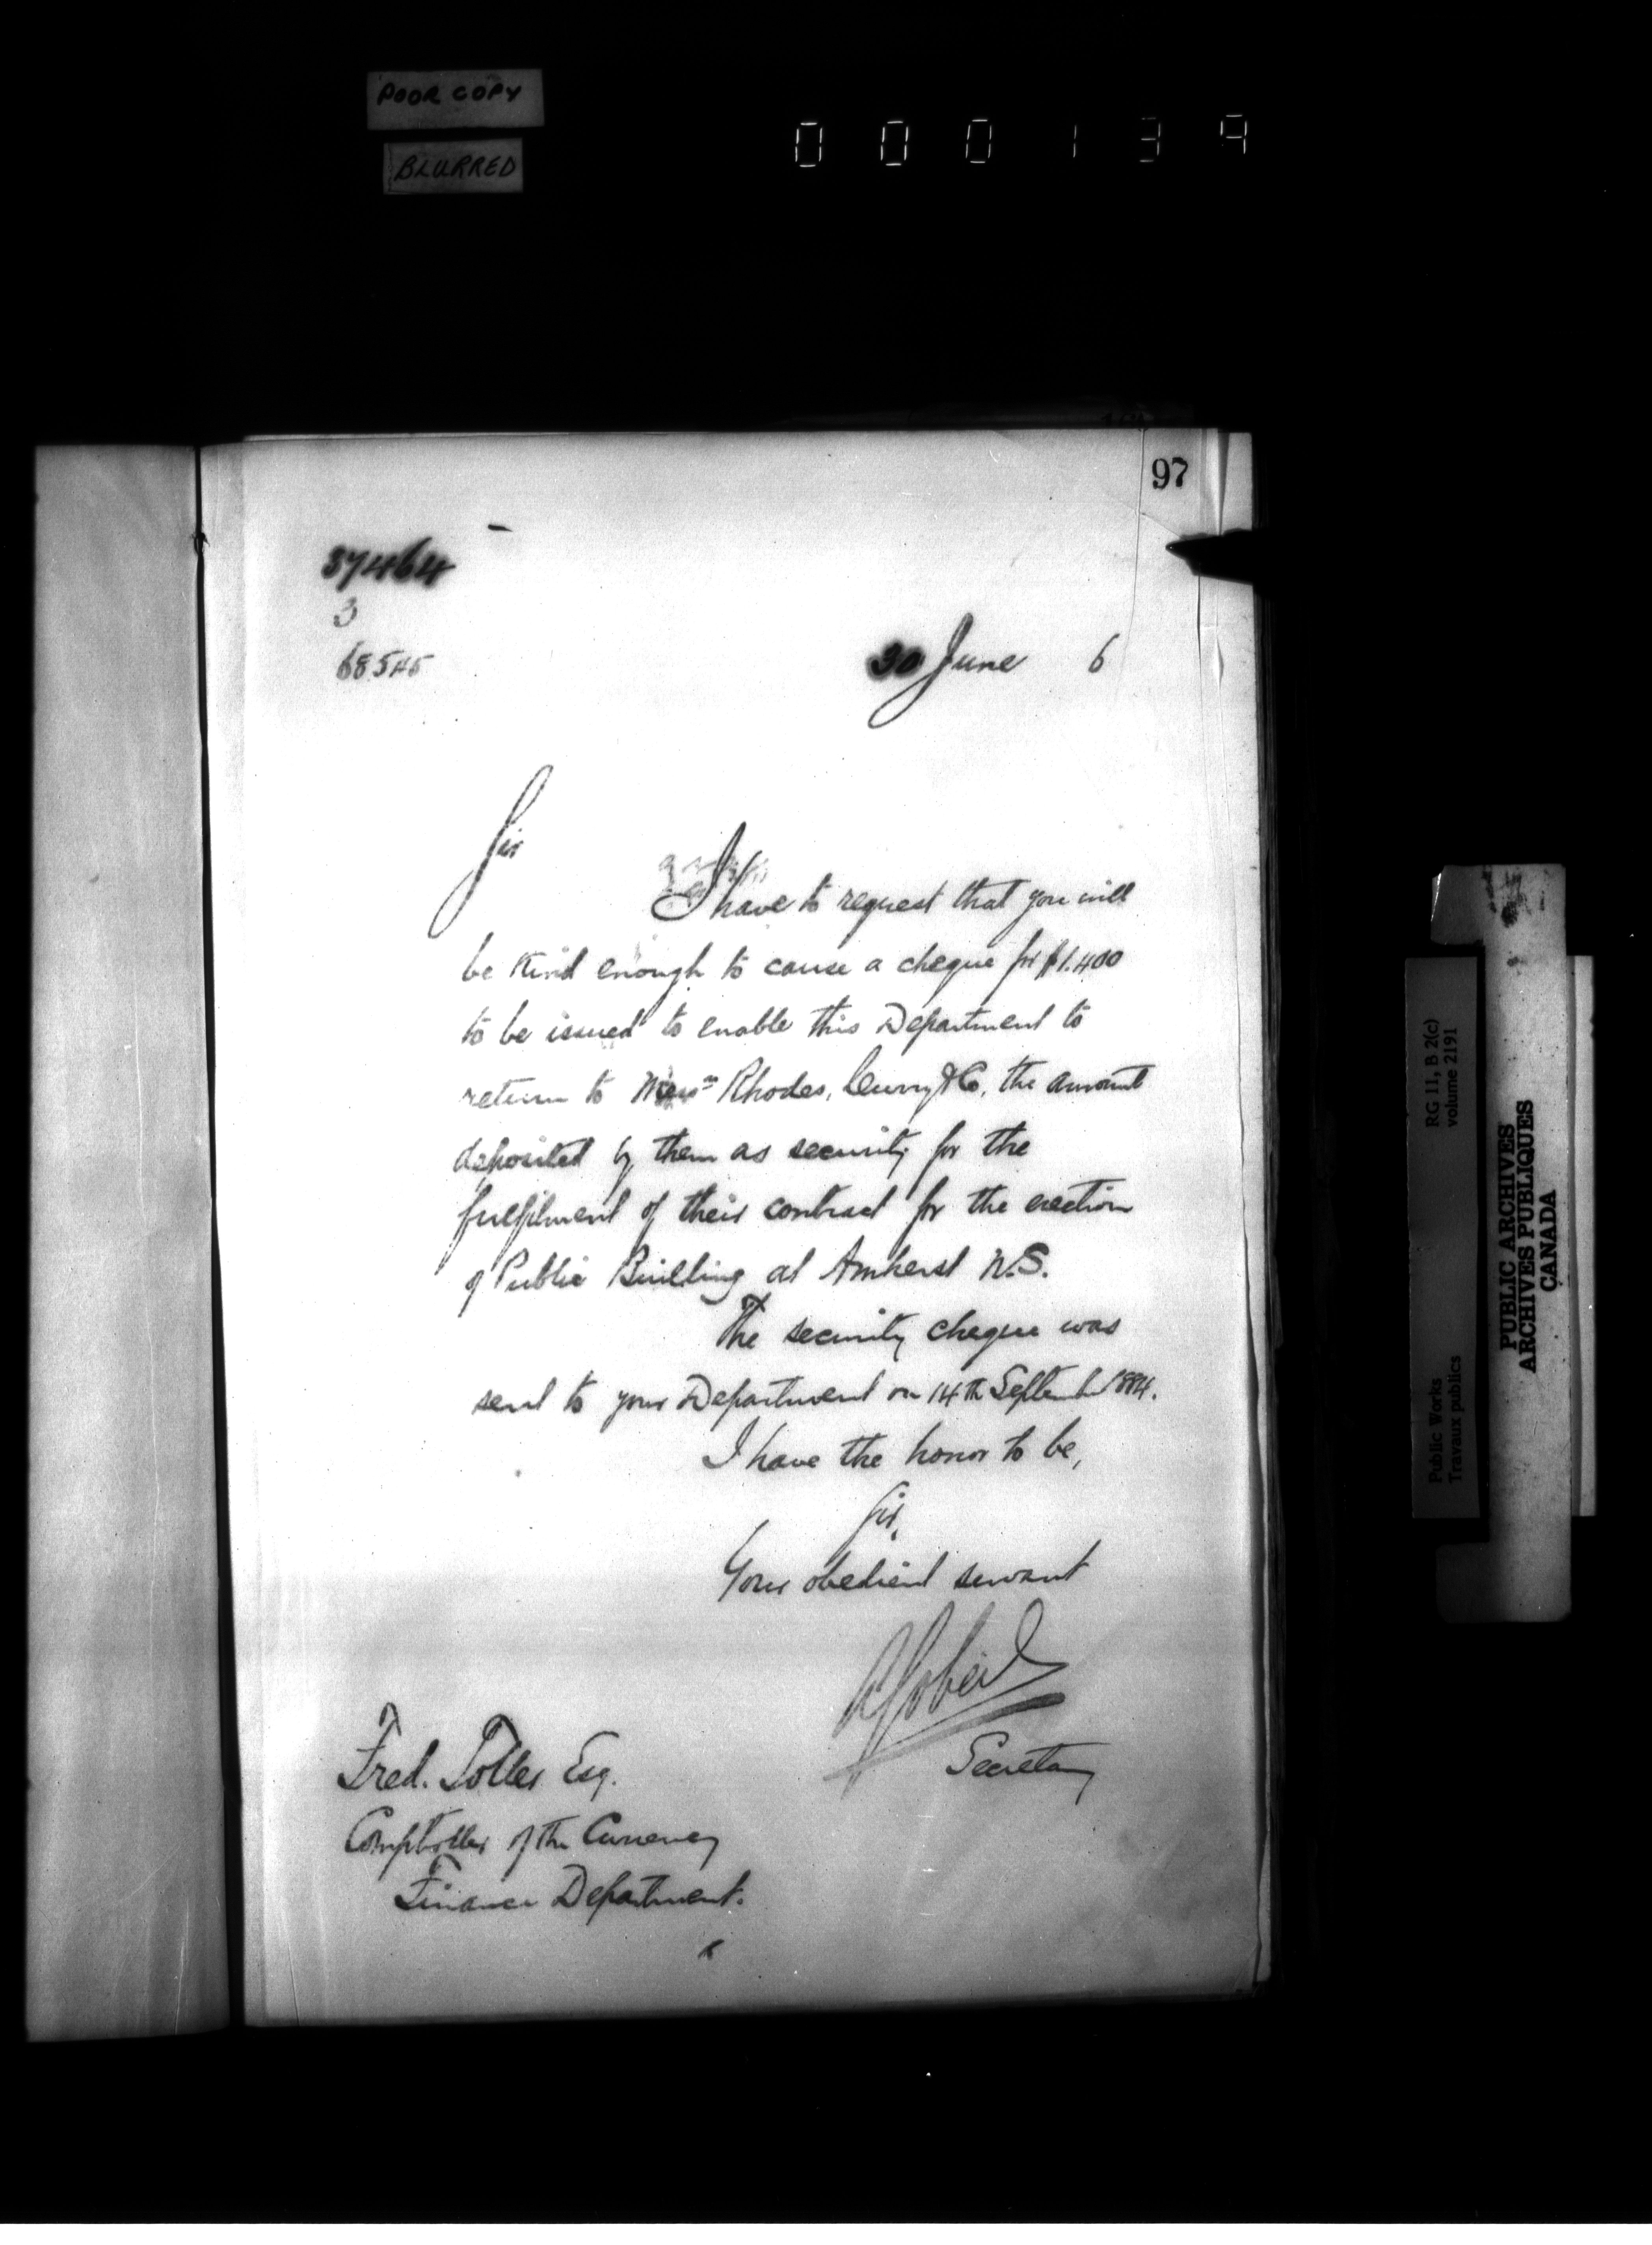 POOR COPY
BLURRED
000139
97
37464
3
68545
30 June 6
Sir
I have to request that you will
be kind enough to cause a cheque for $1.400
to be issued to enable this Department to
return to Messrs Rhodes, Curry & Co, the amount
deposited by them as security for the
fulfilment of their contract for the erection
of Public Building at Amherst N.S.
The security cheque was
sent to your Department on 14th September 1884.
I have the honor to be,
Sir,
Your obedient servant
A Gobeil
Secretary
Fred. Toller Esq.
Comptroller of the Currency
Finance Department.
Public Works
Travaux publics
RG 11, B 2(c)
volume 2191
PUBLIC ARCHIVES
ARCHIVES PUBLIQUES
CANADA